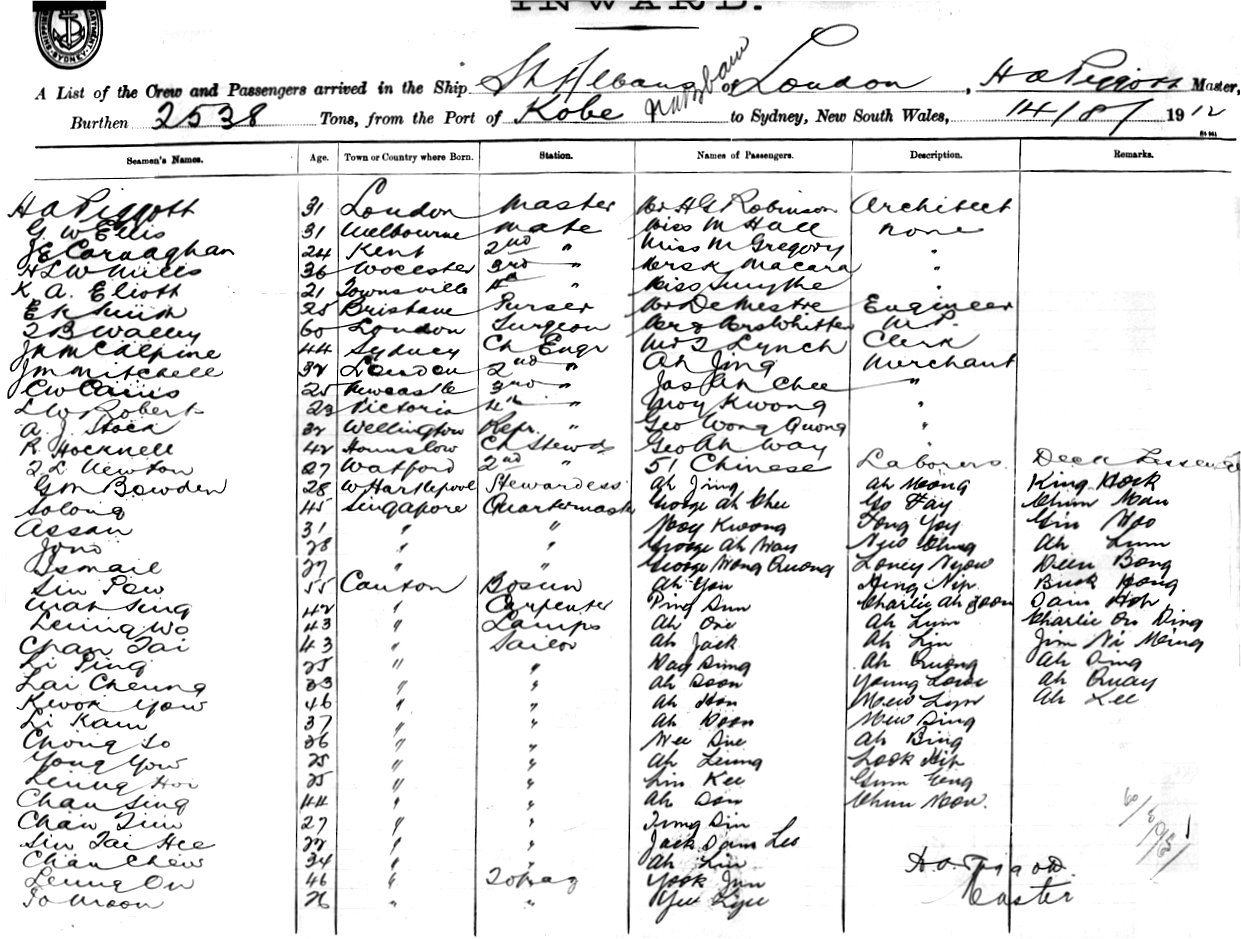 INWARD.
A List of the Crew and Passengers arrived in the Ship St Albans of London, H A Piggott Master,
Burthen 2538 Tons, from the Port of Kobe to Sydney, New South Wales, 14/8/1912
Seamen's Names. Age. Town or Country where Born. Station. Names of Passengers. Description. Remarks.
H A Piggott 31 London Master Mr H G Robinson Architect
G W Ellis 31 Melbourne Mate Miss M Hall None
J E Carnaghan 24 Kent 2nd " Miss M Gregory "
H L W Mills 36 Wocester 3rd " Mrs K Macara "
K A. Eliott 21 Townsville 4th " Miss Smythe "
E K Smith 25 Brisbane Purser Mr De Mestre Engineer
T B Walley 60 London Surgeon Mr & Mrs Whitten M.P.
Jas McAlpine 44 Sydney Ch Engr Mr T Lynch Clerk
J M Mitchell 32 London 2nd " Ah Jing Merchant
C W Cairns 25 Newcastle 3rd " Jas Ah Chee "
L W Robert 23 Victoria 4th " Moy Kwong "
A. J. Stock 32 Wellington Refr. " Geo Wong Quong "
R Hocknell 42 Hounslow Ch Stewd Geo Ah Way
T L Newton 27 Watford 2nd " 51 Chinese Laborers Deck
G M Bowden 28 W Hartlepool Stewardess Ah Jing Ah Mong King Hock
Solong 45 Singapore Quartermaster George Ah Chee Go Fay Chum Man
Assan 31 " " Moy Kwong Tong Yoy Gin
Jono 28 " " George Ah Way Ah Lum
Ismail 27 " " George Wong Quong Loney Deen Bong
Sin Pow 55 Canton Bosun Ah Yon Hing Nip Buck Hong
Mak Sing 42 " Carpenter Ping Sun Charlie Ah Sam Hop
Leung Wo 43 " Lamps Ah One Ah Lum Charlie On Ding
Chan Tai 43 " Sailor Ah Jack Ah Lin Jim
Li Ping 25 " " Ah Quong Ah Sing
Lai Cheung 33 " " Ah Soon Young Ah Quay
Kwok Yow 46 " " Ah Hon Mew Lyn Ah Lee
Li Kam 37 " " Ah Doon Mew Sing
Chong So 36 " " Wee Sue Ah Bing
Yong Yow 25 " " Ah Leung Look Hip
Leung Hoi 25 " " Lin Kee Gum
Chan Sing 44 " " Ah Son Chun
Chan Tim 27 " " Sin
Sin Tai Hee 22 " " Jack Sam Leo
Chan Chew 34 " " Ah Lin
Leung On 46 " Yook Jun
To Moon 26 " " Yee
H.A. Piggott
Master